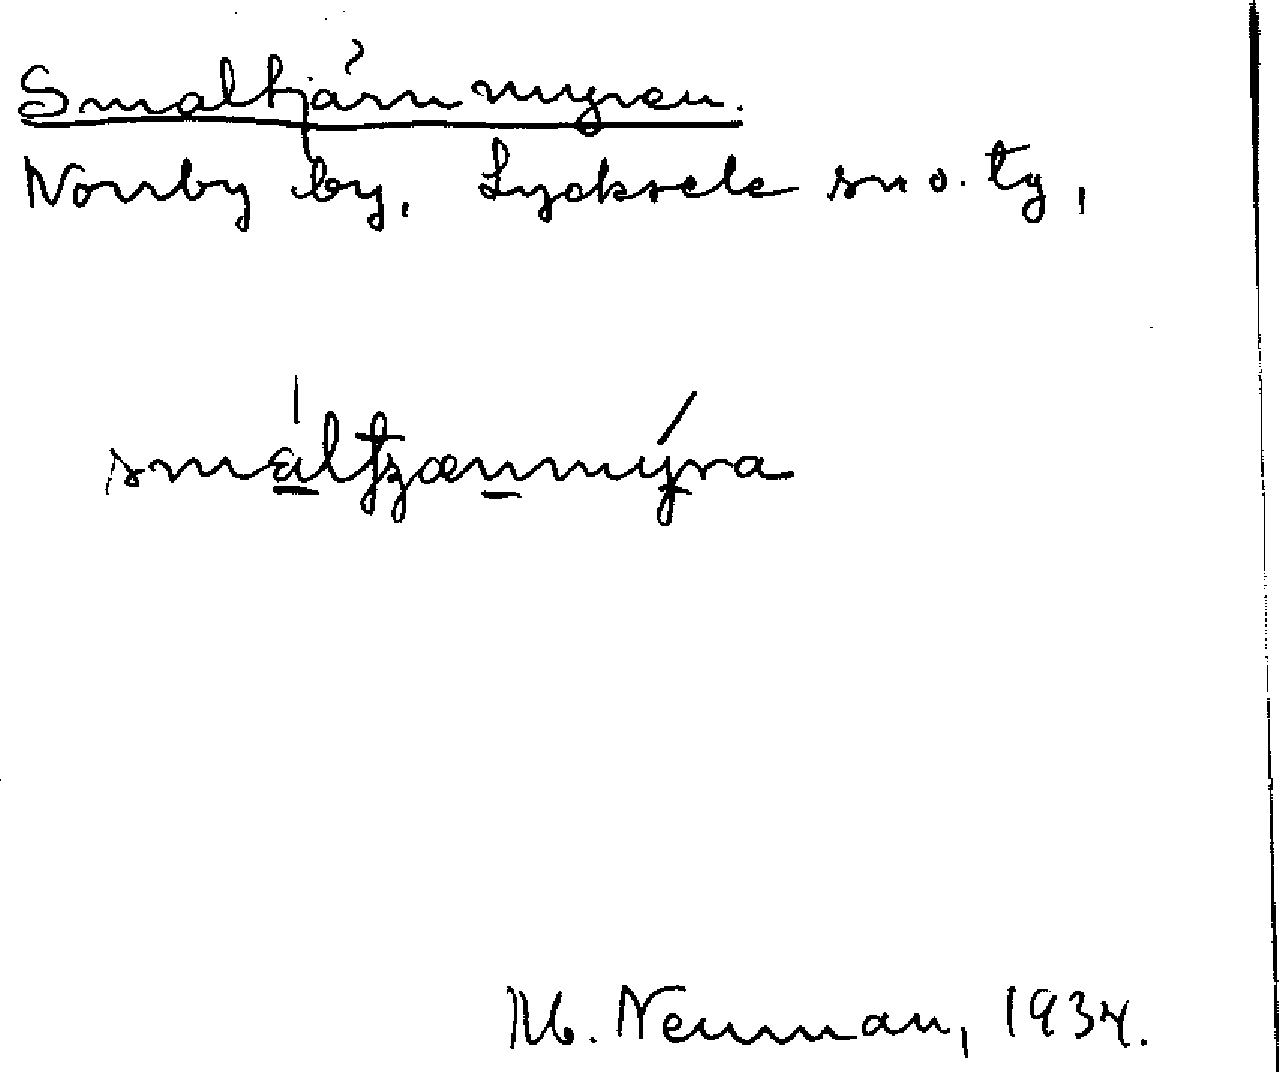 Smaltjärnmyren.
Norrby by, Lycksele sn o. tg,
småltjærnmýra
M. Neuman, 1934.